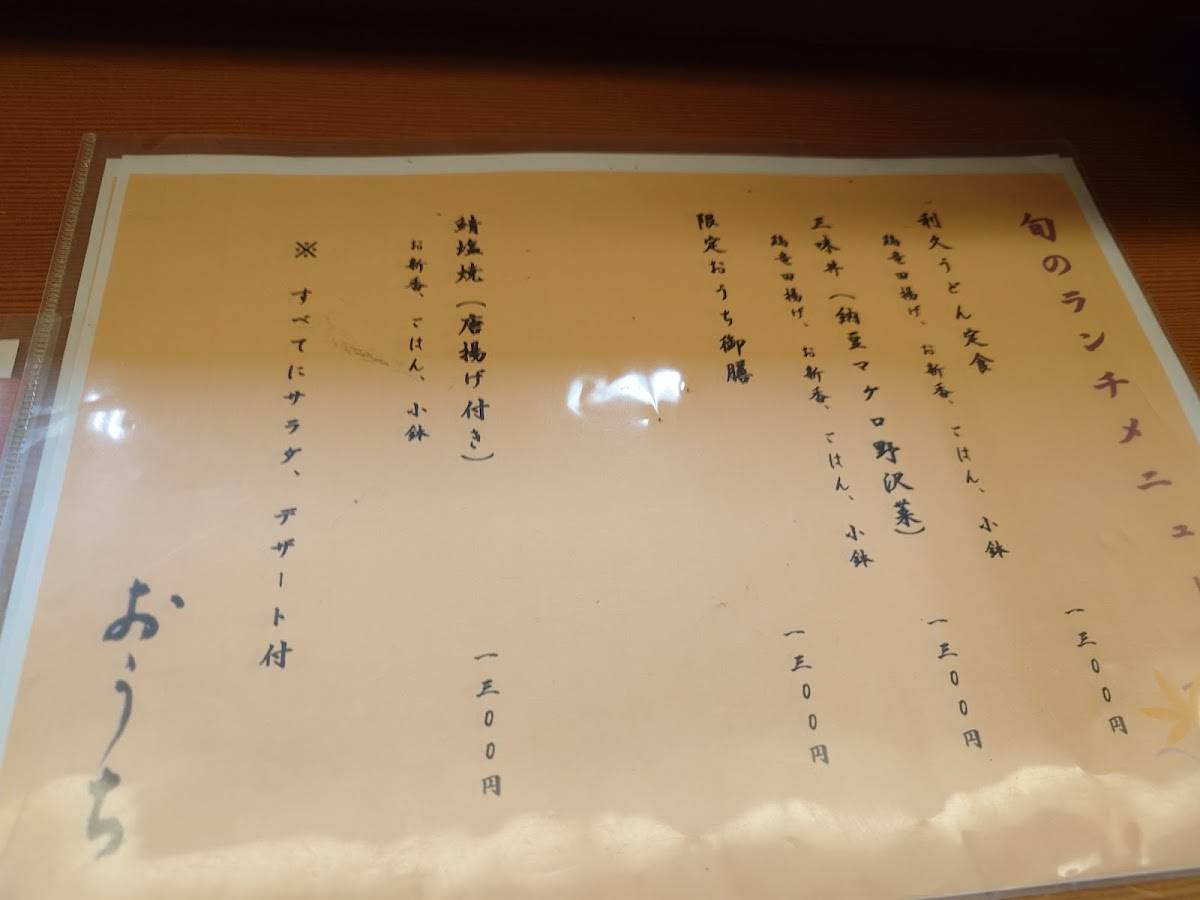 旬のランチメニュー
利久うどん定食
一三〇〇円
鶏竜田揚げ、お新香、ごはん、小鉢
三味丼(納豆マグロ野沢菜)
一三〇〇円
鶏竜田揚げ、お新香、ごはん、小鉢
限定おうち御膳
一三〇〇円
鯖塩焼(唐揚げ付き)
一三〇〇円
お新香、ごはん、小鉢
※ すべてにサラダ、デザート付
おうち